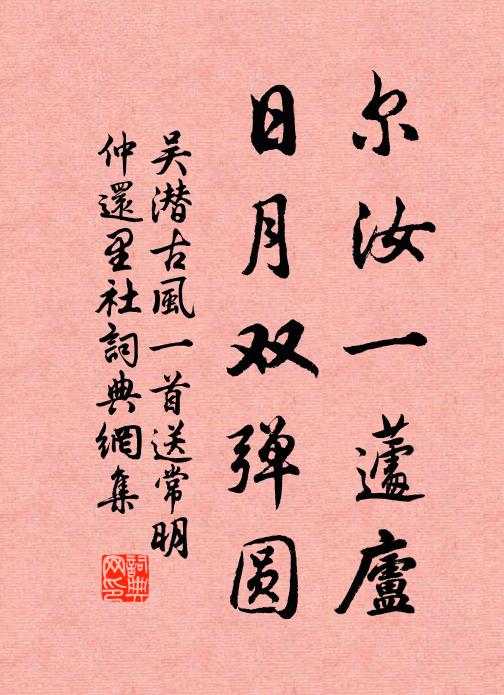 尔汝一蘧廬
日月双弹圆
吴潜古風一首送常明
仲還里社詞典網集
詞典
网印